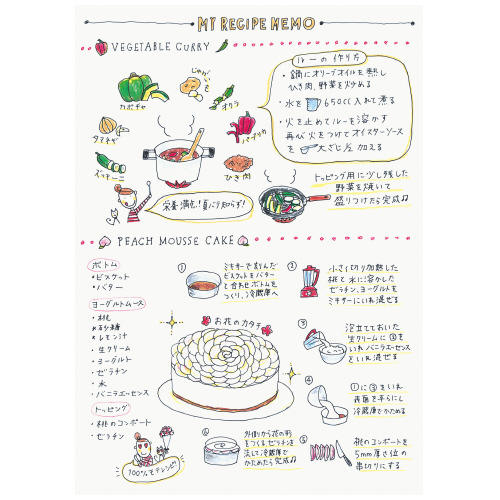 MY RECIPE MEMO
VEGETABLE CURRY
カボチャ
じゃがいも
オクラ
タマネギ
パプリカ
ズッキーニ
ひき肉
栄養満点!夏バテ知らず!
ルーの作り方
・鍋にオリーブオイルを熱し
ひき肉、野菜を炒める
・水を 650cc入れて煮る
・火を止めてルーを溶かす
再び火をつけてオイスターソース
を 大さじ 加える
トッピング用に少し残した
野菜を焼いて
盛りつけたら完成♫
PEACH MOUSSE CAKE
ボトム
・ビスケット
・バター
ヨーグルトムース
・桃
・レモン汁
・生クリーム
・ヨーグルト
・ゼラチン
・水
・バニラエッセンス
トッピング
・桃のコンポート
・ゼラチン
100%でテレンピ!
①
ミキサーで刻んだ
ビスケットをバター
と合わせボトムを
つくり、冷蔵庫へ
②
小さく切り加熱した
桃と水に溶かした
ゼラチン、ヨーグルトを
ミキサーにいれ混ぜる
お花のカタチ
③
泡立てておいた
生クリームに②を
いれバニラエッセンス
をいれ混ぜる
④
①に③をいれ
表面を平らにし
冷蔵庫でかためる
⑤
桃のコンポートを
5mm厚さ位の
串切りにする
⑥
外側から花の形
をつくる。ゼリチンを
流して冷蔵庫で
かためたら完成♫